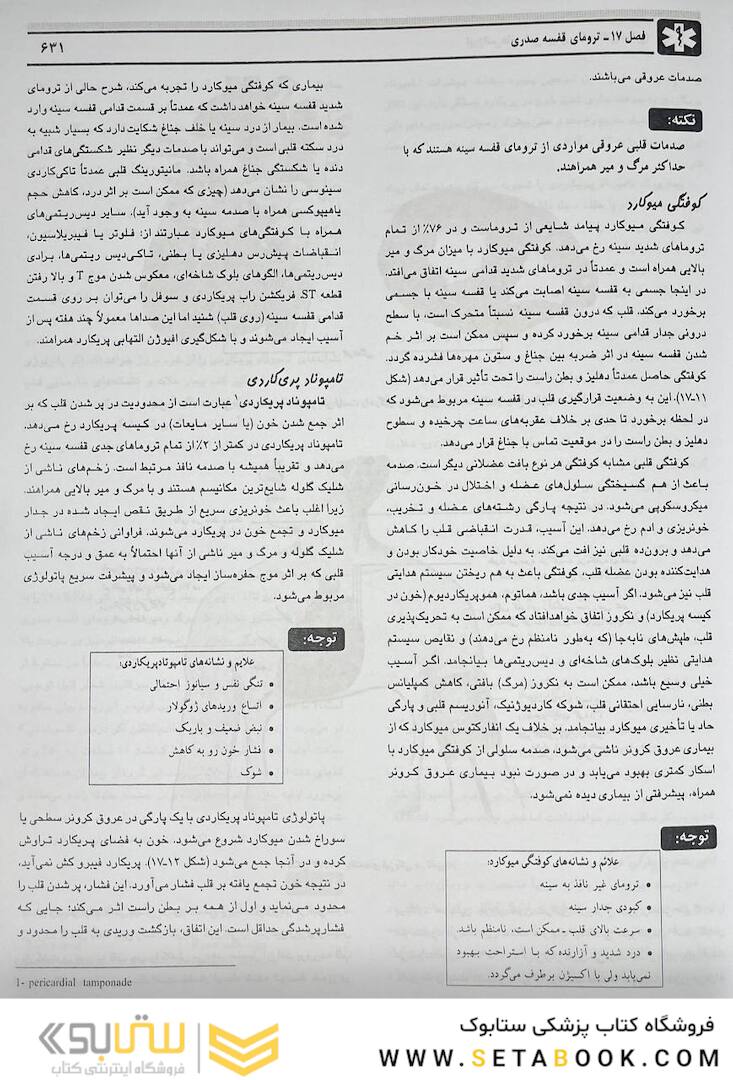 فصل ۱۷ـ ترومای قفسه صدری
۶۳۱
صدمات عروقی می‌باشند.
نکته:
صدمات قلبی عروقی مواردی از ترومای قفسه سینه هستند که با
حداکثر مرگ و میر همراهند.
کوفتگی میوکارد
کوفتگی میوکارد پیامد شایعی از تروماست و در ۷۶٪ از تمام
تروماهای شدید سینه رخ می‌دهد. کوفتگی میوکارد با میزان مرگ و میر
بالایی همراه است و عمدتاً در تروماهای شدید قدامی سینه اتفاق می‌افتد.
در اینجا جسمی به قفسه سینه اصابت می‌کند یا قفسه سینه با جسمی
برخورد می‌کند. قلب که درون قفسه سینه نسبتاً متحرک است، با سطح
درونی جدار قدامی سینه برخورد کرده و سپس ممکن است بر اثر خم
شدن قفسه سینه در اثر ضربه بین جناغ و ستون مهره‌ها فشرده گردد.
کوفتگی حاصل عمدتاً دهلیز و بطن راست را تحت تأثیر قرار می‌دهد (شکل
۱۱-۱۷). این به وضعیت قرارگیری قلب در قفسه سینه مربوط می‌شود که
در لحظه برخورد تا حدی بر خلاف عقربه‌های ساعت چرخیده و سطوح
دهلیز و بطن راست را در موقعیت تماس با جناغ قرار می‌دهد.
کوفتگی قلبی مشابه کوفتگی هر نوع بافت عضلانی دیگر است. صدمه
باعث از هم گسیختگی سلول‌های عضله و اختلال در خون‌رسانی
میکروسکوپی می‌شود. در نتیجه پارگی رشته‌های عضله و تخریب،
خونریزی و ادم رخ می‌دهد. این آسیب، قدرت انقباضی قلب را کاهش
می‌دهد و برون‌ده قلبی نیز افت می‌کند. به دلیل خاصیت خودکار بودن و
هدایت‌کننده بودن عضله قلب، کوفتگی باعث به هم ریختن سیستم هدایتی
قلب نیز می‌شود. اگر آسیب جدی باشد، هماتوم، هموپریکاردیوم (خون در
کیسه پریکارد) و نکروز اتفاق خواهدافتاد که ممکن است به تحریک‌پذیری
قلب، طپش‌های نابه‌جا (که به‌طور نامنظم رخ می‌دهند) و نقایص سیستم
هدایتی نظیر بلوک‌های شاخه‌ای و دیس‌ریتمی‌ها بیانجامد. اگر آسیب
خیلی وسیع باشد، ممکن است به نکروز (مرگ) بافتی، کاهش کمپلیانس
بطنی، نارسایی احتقانی قلب، شوک کاردیوژنیک، آنوریسم قلبی و پارگی
حاد یا تأخیری میوکارد بیانجامد. بر خلاف یک انفارکتوس میوکارد که از
بیماری عروق کرونر ناشی می‌شود، صدمه سلولی از کوفتگی میوکارد با
اسکار کمتری بهبود می‌یابد و در صورت نبود بیماری عروق کرونر
همراه، پیشرفتی از بیماری دیده نمی‌شود.
توجه:
علائم و نشانه‌های کوفتگی میوکارد:
• ترومای غیر نافذ به سینه
• کبودی جدار سینه
• سرعت بالای قلب ـ ممکن است، نامنظم باشد.
• درد شدید و آزارنده که با استراحت بهبود
نمی‌یابد ولی با اکسیژن برطرف می‌گردد.
بیماری که کوفتگی میوکارد را تجربه می‌کند، شرح حالی از ترومای
شدید قفسه سینه خواهد داشت که عمدتاً بر قسمت قدامی قفسه سینه وارد
شده است. بیمار از درد سینه یا خلف جناغ شکایت دارد که بسیار شبیه به
درد سکته قلبی است و می‌تواند با صدمات دیگر نظیر شکستگی‌های قدامی
دنده یا شکستگی جناغ همراه باشد. مانیتورینگ قلبی عمدتاً تاکی‌کاردی
سینوسی را نشان می‌دهد (چیزی که ممکن است بر اثر درد، کاهش حجم
یاهیپوکسی همراه با صدمه سینه به وجود آید). سایر دیس‌ریتمی‌های
همراه با کوفتگی‌های میوکارد عبارتند از: فلوتر یا فیبریلاسیون،
انقباضات پیش‌رس دهلیزی یا بطنی، تاکی‌دیس ریتمی‌ها، برادی
دیس‌ریتمی‌ها، الگوهای بلوک شاخه‌ای، معکوس شدن موج T و بالا رفتن
قطعه ST. فریکشن راب پریکاردی و سوفل را می‌توان بر روی قسمت
قدامی قفسه سینه (روی قلب) شنید اما این صداها معمولاً چند هفته پس از
آسیب ایجاد می‌شوند و با شکل‌گیری افیوژن التهابی پریکارد همراهند.
تامپوناد پری‌کاردی
تامپوناد پریکاردی¹ عبارت است از محدودیت در پر شدن قلب که بر
اثر جمع شدن خون (یا سایر مایعات) در کیسه پریکارد رخ می‌دهد.
تامپوناد پریکاردی در کمتر از ۲٪ از تمام تروماهای جدی قفسه سینه رخ
می‌دهد و تقریباً همیشه با صدمه نافذ مرتبط است. زخم‌های ناشی از
شلیک گلوله شایع‌ترین مکانیسم هستند و با مرگ و میر بالایی همراهند.
زیرا اغلب باعث خونریزی سریع از طریق نقص ایجاد شده در جدار
میوکارد و تجمع خون در پریکارد می‌شوند. فراوانی زخم‌های ناشی از
شلیک گلوله و مرگ و میر ناشی از آنها احتمالاً به عمق و درجه آسیب
قلبی که بر اثر موج حفره‌ساز ایجاد می‌شود و پیشرفت سریع پاتولوژی
مربوط می‌شود.
توجه:
علایم و نشانه‌های تامپونادپریکاردی:
• تنگی نفس و سیانوز احتمالی
• اتساع وریدهای ژوگولار
• نبض ضعیف و باریک
• فشار خون رو به کاهش
• شوک
پاتولوژی تامپوناد پریکاردی با یک پارگی در عروق کرونر سطحی یا
سوراخ شدن میوکارد شروع می‌شود. خون به فضای پریکارد تراوش
کرده و در آنجا جمع می‌شود (شکل ۱۲-۱۷). پریکارد فیبرو کش نمی‌آید،
در نتیجه خون تجمع یافته بر قلب فشار می‌آورد. این فشار، پر شدن قلب را
محدود می‌نماید و اول از همه بر بطن راست اثر می‌کند؛ جایی که
فشارپرشدگی حداقل است. این اتفاق، بازگشت وریدی به قلب را محدود و
1- pericardial tamponade
فروشگاه کتاب پزشکی ستابوک
WWW.SETABOOK.COM
ستابوک
فروشگاه اینترنتی کتاب